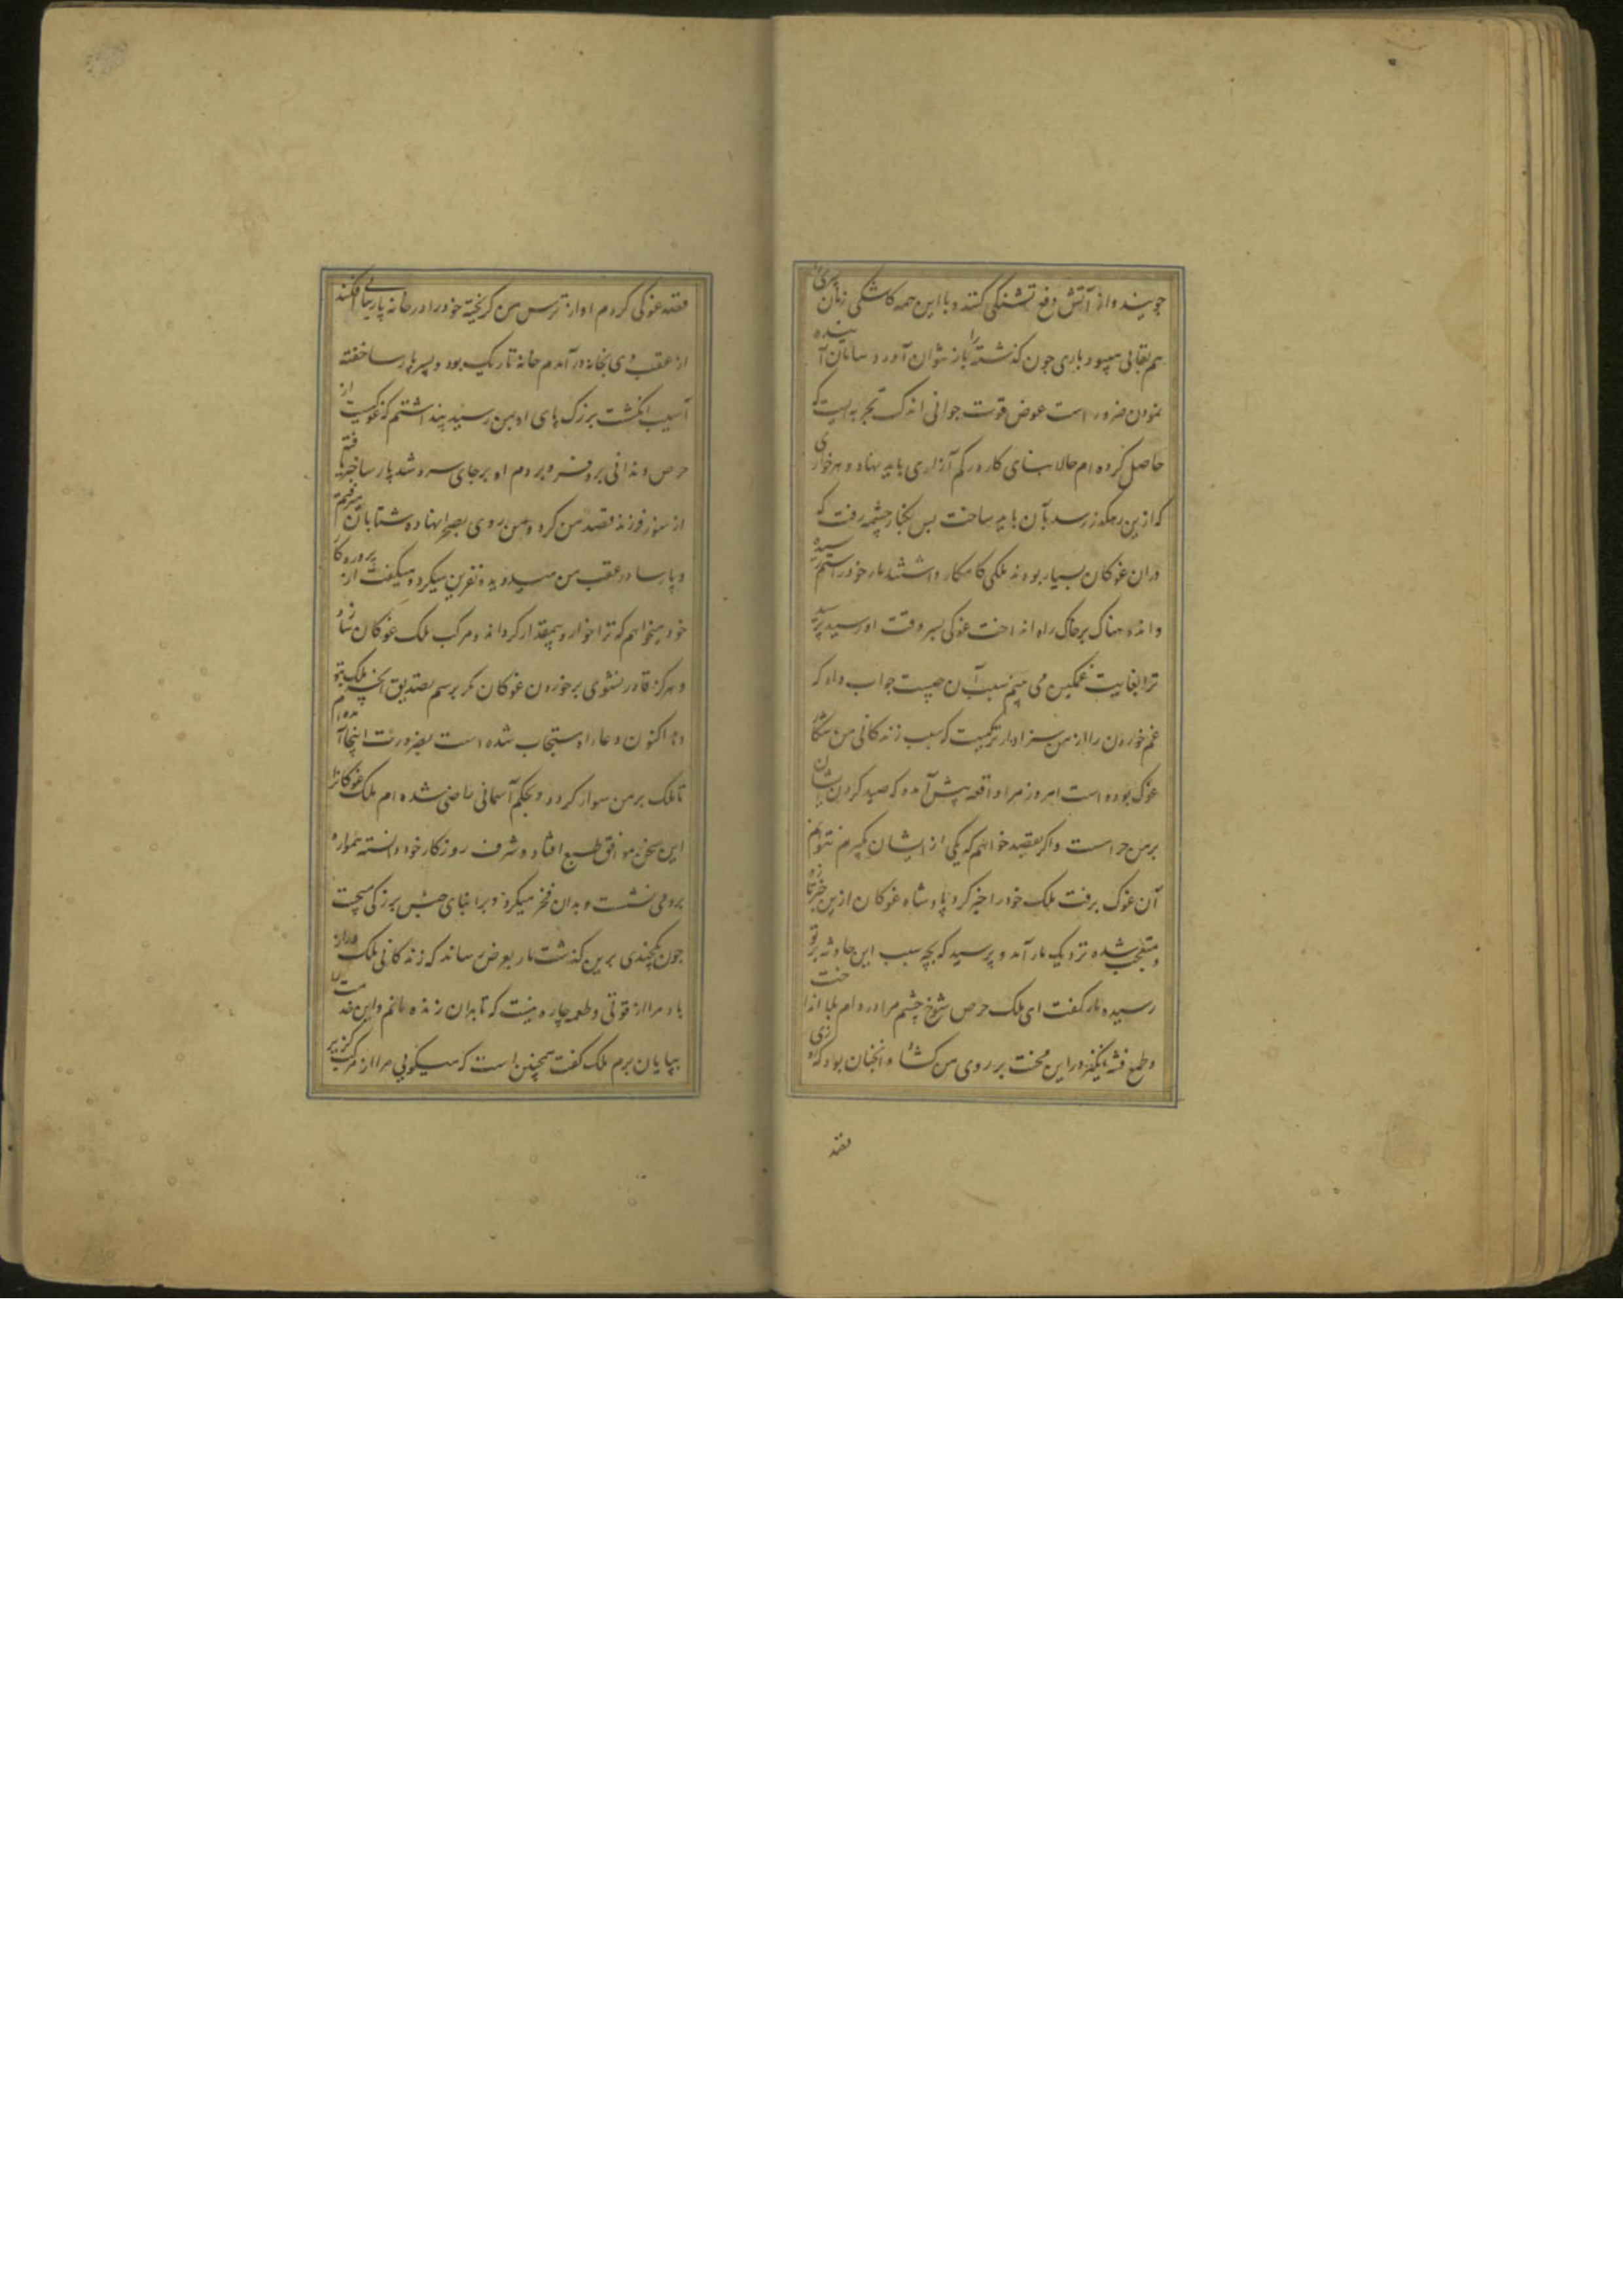 جویند و از آتش دفع تشنگی کنند و با این همه کاشکی زمان پیری را
هم بقایی میبود باری چون گذشته را باز نتوان آورد و سامان آینده
نمودن ضرور است عوض قوت جوانی اندک تجربه ایست که
حاصل کرده ام حالا بنای کار در کم آزاری باید نهاد و هر خواری
که ازین رهگذر رسد بآن باید ساخت پس بکنار چشمه رفت که
دران غوکان بسیار بودند ملکی کامکار داشتند مار خود را ستم رسیده
و اندهناک بر خاک راه انداخت غوکی بسر وقت او رسید پرسید
ترا بغایت غمگین می بینم سبب آن چیست جواب داد که
غم خوردن را از من سزاوارتر کیست که سبب زندگانی من شکار
غوک بوده است امروز مرا واقعه پیش آمده که صید کردن ایشان
بر من حرامست و اگر بقصد خواهم که یکی از ایشان بگیرم نتوانم
آن غوک برفت ملک خود را خبر کرد پادشاه غوکان ازین خبر تازه
متعجب شده نزدیک مار آمد و پرسید که بچه سبب این حادثه بر تو
رسیده مار گفت ای ملک حرص شوخ چشم مرا در دام بلا انداخت
و طمع فتنه انگیز در این محنت بر روی من گشاد و آنچنان بود که روزی
قصد
قصد غوکی کردم او از ترس من گریخته خود را در خانه پارسایی افکند
از عقب وی بخانه در آمدم خانه تاریک بود و پسر پارسا خفته
آسیب انگشت بزرگ پای او بمن رسید پنداشتم که غوکیست از
حرص دندانی برو فرو بردم او بر جای سرد شد پارسا خبر یافته
از سوز فرزند قصد من کرد و من روی بصحرا نهاده شتابان میرفتم
و پارسا در عقب من میدوید و نفرین میکرد و میگفت از پروردگار
خود میخواهم که ترا خوار و بیمقدار گرداند و مرکب ملک غوکان سازد
و هرگز قادر نشوی بر خوردن غوکان مگر برسم تصدیق آنچه ملک بتو
دهد اکنون دعاء او مستجاب شده است بضرورت اینجا آمده ام
تا ملک بر من سوار گردد و بحکم آسمانی راضی شده ام ملک غوکانرا
این سخن موافق طبع افتاد و شرف روزگار خود دانسته همواره
برو می نشست و بدان فخر میکرد و بر ابنای جنس بزرگی میجست
چون یکچندی برین گذشت مار بعرض رساند که زندگانی ملک دراز
باد مرا از قوتی و طعمه چاره نیست که تا بدان زنده مانم و این خدمت
بپایان برم ملک گفت همچنین است که میگویی مرا از مرکب گزیر